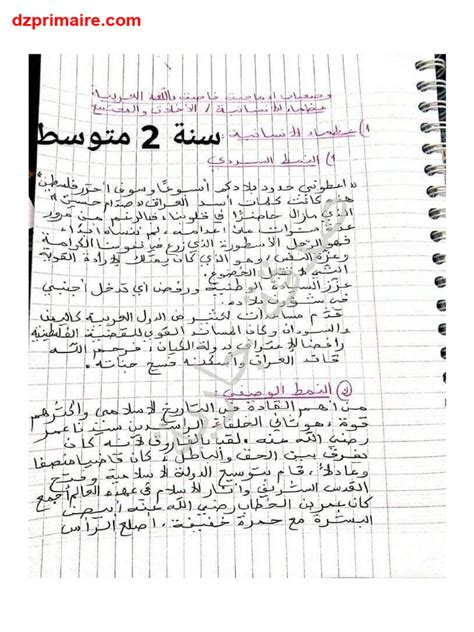 dzprimaire.com
وضعيات إدماجية خاصة باللغة العربية:
عظماء الإنسانية / الأخلاق والمجتمع
سنة 2 متوسط
1) عظماء الإنسانية:
1) النمط السردي
"اعطوني حدود بلادكم أسبوعا وسوف أحرر فلسطين"
هذه كانت كلمات أسد العراق صدام حسين
الذي مازال حاضرا في قلوبنا، فبالرغم من مرور
عدة سنوات على اعدامه، لم ننساه أبدا
فهو الرجل الأسطورة الذي زرع في نفوسنا الكرامة
وعزة النفس، وهو الذي كان يمتلك الإرادة القوية
التي لا تقبل الخضوع.
عزز السيادة الوطنية ورفض أي تدخل أجنبي
في شؤون بلاده.
قدم مساعدات لكثير من الدول العربية كاليمن
والسودان وكان المساند القوي للقضية الفلسطينية
رافضا الاعتراف بدولة الكيان، فرحم الله
قائد العراق وأسكنه فسيح جناته.
2) النمط الوصفي
من أهم القادة في التاريخ الإسلامي وأكثرهم
قوة، هو ثاني الخلفاء الراشدين سيدنا عمر
رضي الله عنه. لقب بالفاروق لأنه كان
يفرق بين الحق والباطل، كان قاضيا منصفا
وعادلا، قام بتوسيع الدولة الإسلامية وفتح
القدس الشريف وأنار الإسلام في عهده العالم أجمع
كان عمر بن الخطاب رضي الله عنه أبيض
البشرة مع حمرة خفيفة، اصلع الرأس